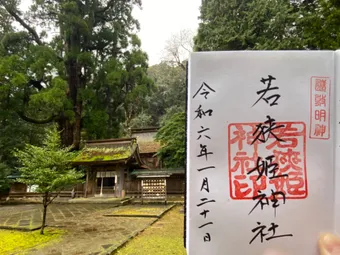 國鎮明神
若狭姫神社
若狭姫神社印
令和六年一月二十一日